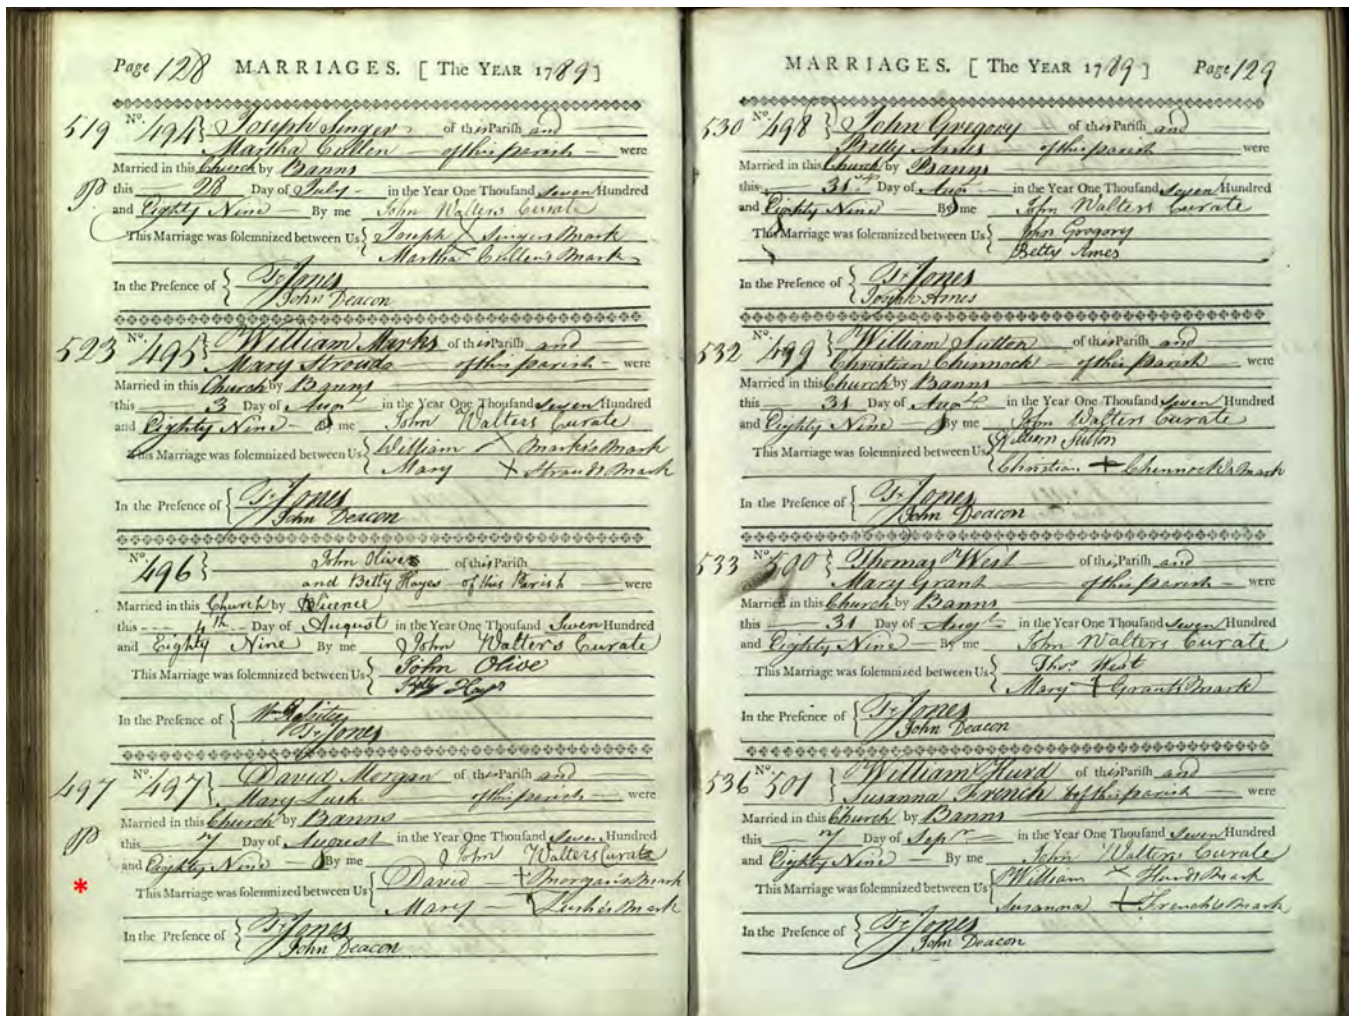 Page 128 MARRIAGES. [ The YEAR 1789 ]
519 No. 494 } Joseph Singer of this Parish and
Martha Cullen of this parish were
Married in this Church by Banns
this 28 Day of July in the Year One Thousand Seven Hundred
and Eighty Nine By me John Walters Curate
This Marriage was solemnized between Us { Joseph X Singers Mark
Martha Cullen's Mark
In the Presence of { Jones
John Deacon
523 No. 495 } William Marks of this Parish and
Mary Stroud of this parish were
Married in this Church by Banns
this 3 Day of Augst in the Year One Thousand Seven Hundred
and Eighty Nine By me John Walters Curate
This Marriage was solemnized between Us { William X Marks's Mark
Mary X Stroud's Mark
In the Presence of { Jones
John Deacon
No. 496 } John Olive of this Parish
and Betty Hayes of this Parish were
Married in this Church by Licence
this 4th Day of August in the Year One Thousand Seven Hundred
and Eighty Nine By me John Walters Curate
This Marriage was solemnized between Us { John Olive
Betty Hays
In the Presence of { Wm
Jones
497 No. 497 } David Morgan of this Parish and
Mary Lush of this parish were
Married in this Church by Banns
this 7 Day of August in the Year One Thousand Seven Hundred
and Eighty Nine By me John Walters Curate
* This Marriage was solemnized between Us { David + Morgan's Mark
Mary Lush's Mark
In the Presence of { Jones
John Deacon
MARRIAGES. [ The YEAR 1789 ] Page 129
530 No. 498 } John Gregory of this Parish and
Betty Ames of this parish were
Married in this Church by Banns
this 31st Day of Augst in the Year One Thousand Seven Hundred
and Eighty Nine By me John Walters Curate
This Marriage was solemnized between Us { John Gregory
Betty Ames
In the Presence of { Jones
Josiah Ames
532 No. 499 } William Sutton of this Parish and
Christian Chinnock of this parish were
Married in this Church by Banns
this 31 Day of Augst in the Year One Thousand Seven Hundred
and Eighty Nine By me John Walters Curate
This Marriage was solemnized between Us { William Sutton
Christian + Chinnock's Mark
In the Presence of { Jones
John Deacon
533 No. 500 } Thomas West of this Parish and
Mary Grant of this parish were
Married in this Church by Banns
this 31 Day of Augst in the Year One Thousand Seven Hundred
and Eighty Nine By me John Walters Curate
This Marriage was solemnized between Us { Thos West
Mary + Grants Mark
In the Presence of { Jones
John Deacon
536 No. 501 } William Hurd of this Parish and
Susanna French of this parish were
Married in this Church by Banns
this 7 Day of Sepr in the Year One Thousand Seven Hundred
and Eighty Nine By me John Walters Curate
This Marriage was solemnized between Us { William X Hurds Mark
Susanna + French's Mark
In the Presence of { Jones
John Deacon